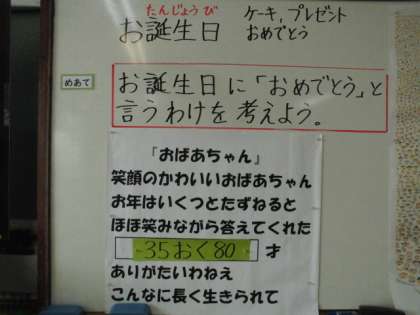 たんじょうび
お誕生日　ケーキ、プレゼント
おめでとう
めあて
お誕生日に「おめでとう」と
言うわけを考えよう。
『おばあちゃん』
笑顔のかわいいおばあちゃん
お年はいくつとたずねると
ほほ笑みながら答えてくれた
35おく80 才
ありがたいわねえ
こんなに長く生きられて